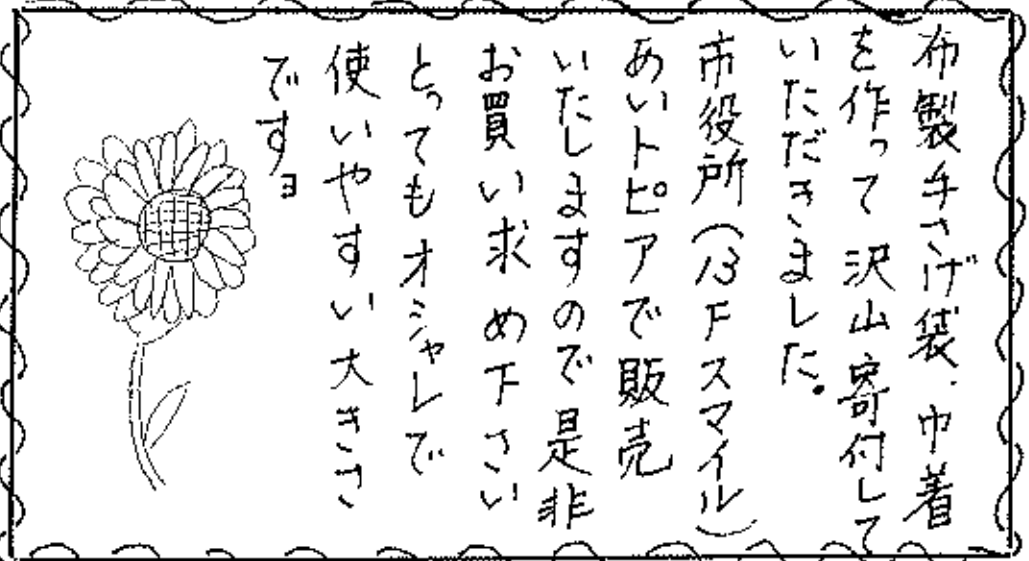 布製手さげ袋、巾着
を作って沢山寄付して
いただきました。
市役所(13Fスマイル)
あいトピアで販売
いたしますので是非
お買い求め下さい
とってもオシャレで
使いやすい大きさ
ですョ